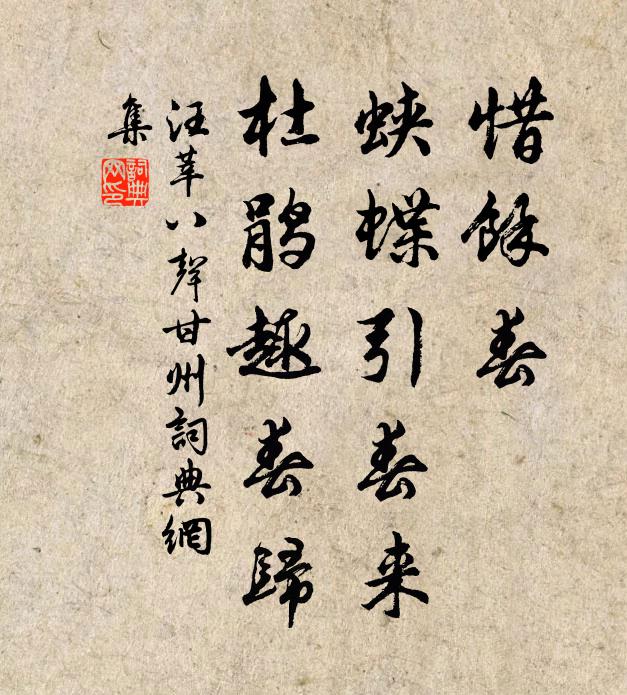 惜馀春
蛱蝶引春来
杜鹃趣春歸
汪莘八聲甘州詞典網
集
詞典
网印